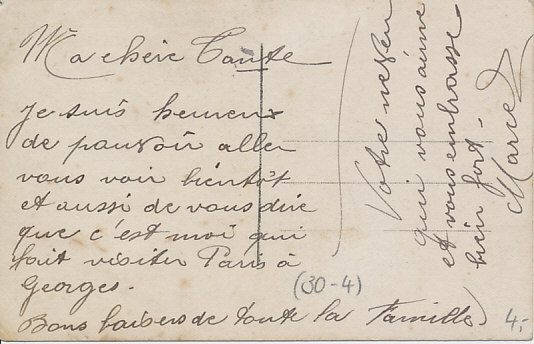 Ma chère Tante
Je suis heureux
de pouvoir aller
vous voir bientôt
et aussi de vous dire
que c'est moi qui
fait visiter Paris à
Georges.
Bons baisers de toute la Famille
Votre neveu
qui vous aime
et vous embrasse
bien fort -
Marcel
(30-4)
4,-